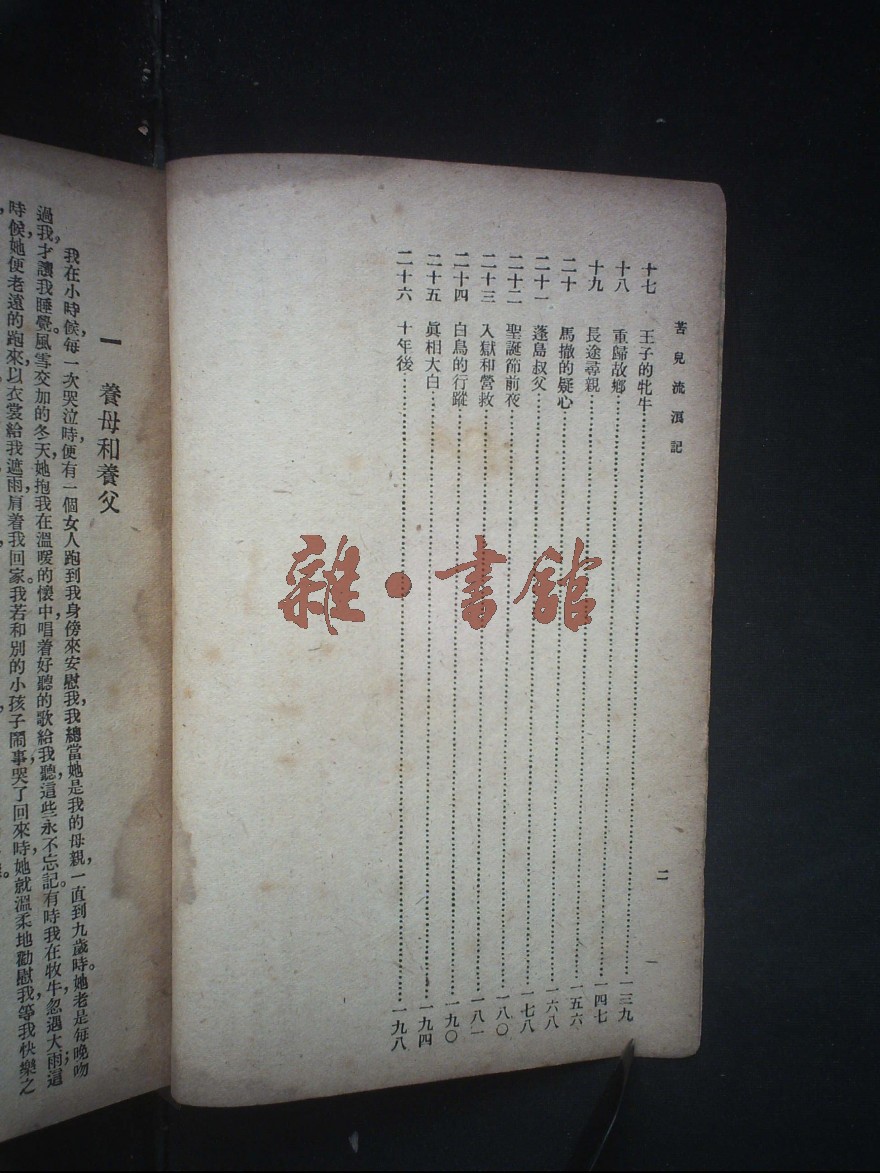 苦兒流浪記
二
十七　王子的牝牛……一三九
十八　重歸故鄉……一四七
十九　長途尋親……一五六
二十　馬撤的疑心……一六八
二十一　蓬島叔父……一七八
二十二　聖誕節前夜……一八〇
二十三　入獄和營救……一八一
二十四　白鳥的行蹤……一九〇
二十五　眞相大白……一九四
二十六　十年後……一九八
雜·書館
一　養母和養父
我在小時候，每一次哭泣時，便有一個女人跑到我身傍來安慰我，我總當她是我的母親，一直到九歲時。她老是每晚吻
過我，才讓我睡覺。風雪交加的冬天，她抱我在溫暖的懷中，唱着好聽的歌給我聽，這些永不忘記。有時我在牧牛，忽遇大雨；這
時候，她便老遠的跑來，以衣裳給我遮雨，肩着我回家。我若和別的小孩子鬧事，哭了回來時，她就溫柔地勸慰我，等我快樂之